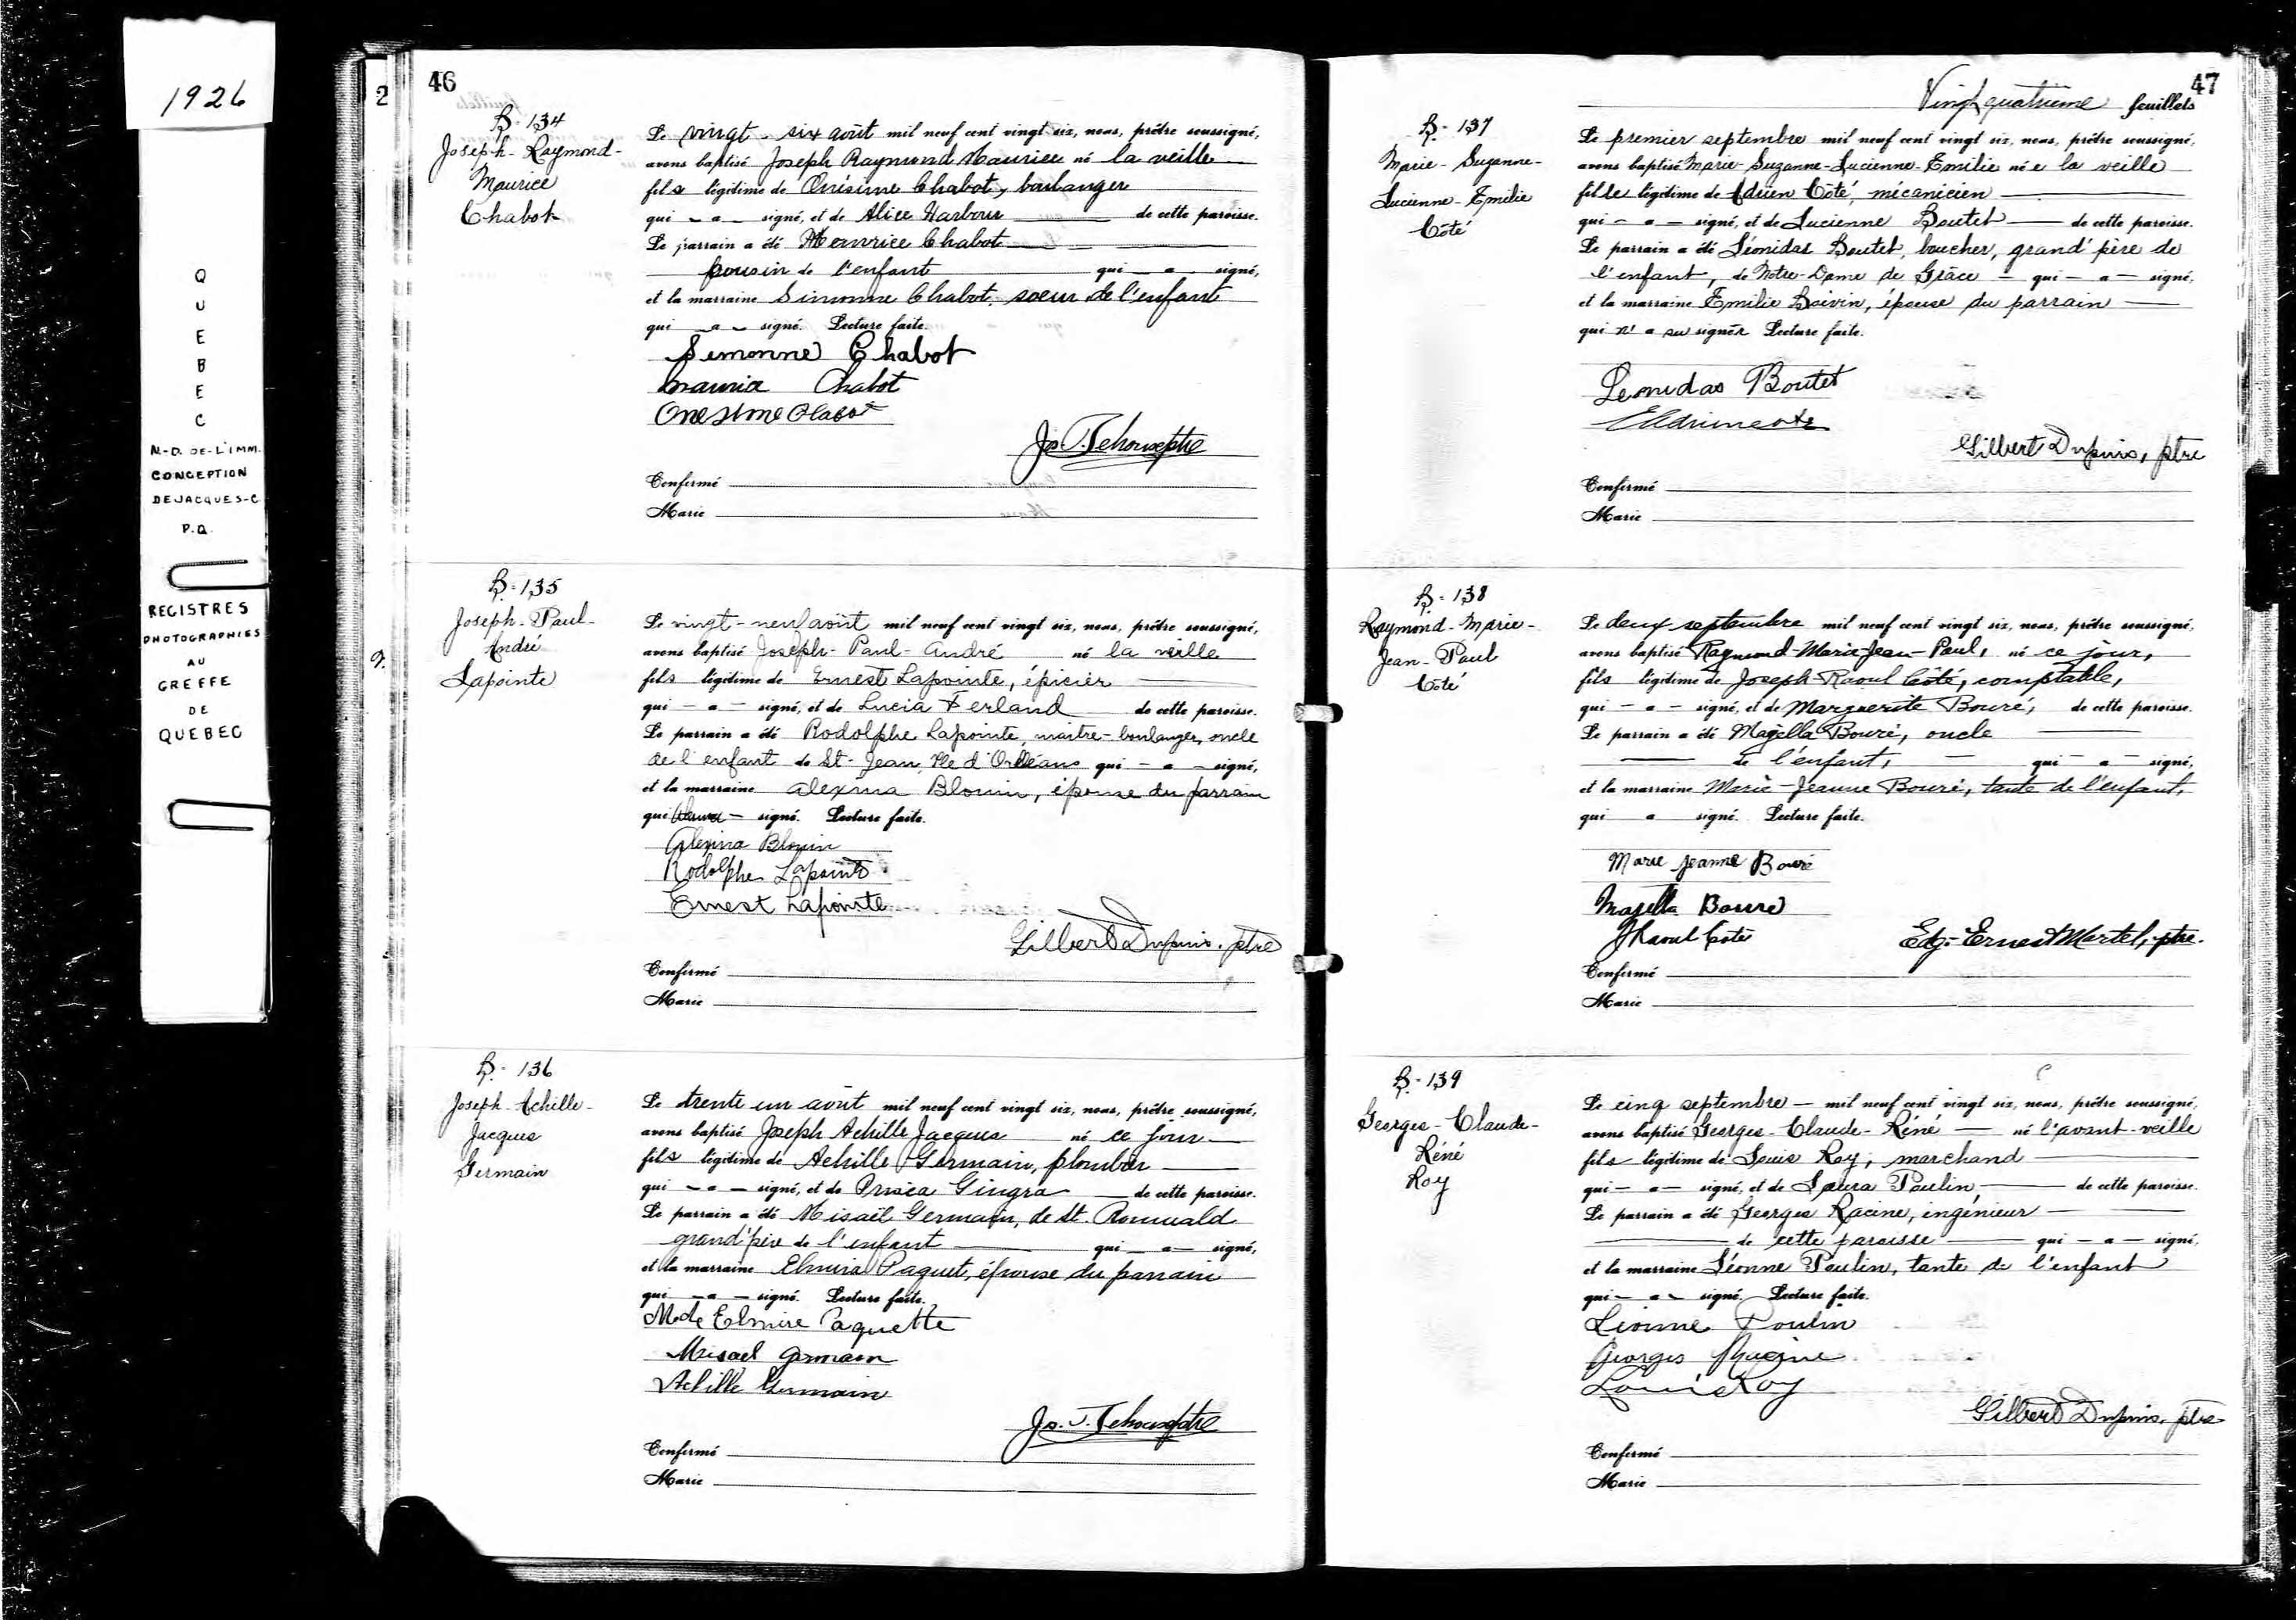 1926
QUEBEC
N.-D. DE-L'IMM.
CONCEPTION
DE JACQUES-C
P.Q.
REGISTRES
PHOTOGRAPHIES
AU
GREFFE
DE
QUEBEC
2
46
B. 134
Joseph-Raymond-
Maurice
Chabot
Le vingt-six août mil neuf cent vingt six, nous, prêtre soussigné,
avons baptisé Joseph Raymond Maurice né la veille
fils légitime de Onésime Chabot, boulanger
qui - a - signé, et de Alice Harbour de cette paroisse.
Le parrain a été Maurice Chabot
cousin de l'enfant qui - a - signé,
et la marraine Simonne Chabot, soeur de l'enfant
qui - a - signé. Lecture faite.
Simonne Chabot
Maurice Chabot
Onesime Chabot
Confirmé
Marie
B. 135
Joseph-Paul-
André
Lapointe
Le vingt-neuf août mil neuf cent vingt six, nous, prêtre soussigné,
avons baptisé Joseph-Paul-André né la veille
fils légitime de Ernest Lapointe, épicier
qui - a - signé, et de Lucia Ferland de cette paroisse.
Le parrain a été Rodolphe Lapointe, maitre-boulanger, oncle
de l'enfant de St-Jean, Ile d'Orléans qui - a - signé,
et la marraine Alexina Blouin, épouse du parrain
qui - signé. Lecture faite.
Alexina Blouin
Rodolphe Lapointe
Ernest Lapointe
Gilbert Dupuis, ptre
Confirmé
Marie
B. 136
Joseph-Achille-
Jacques
Germain
Le trente un août mil neuf cent vingt six, nous, prêtre soussigné,
avons baptisé Joseph Achille Jacques né ce jour
fils légitime de Achille Germain, plombier
qui - a - signé, et de Prisca Gingra de cette paroisse.
Le parrain a été Misaël Germain, de St. Romuald
grand'père de l'enfant qui - a - signé,
et la marraine Elmira Paquet, épouse du parrain
qui - a - signé. Lecture faite.
Mde Elmire Paquette
Misael Germain
Achille Germain
Confirmé
Marie
47
Vingt quatrième feuillets
B. 137
Marie-Suzanne-
Lucienne-Emilie
Côté
Le premier septembre mil neuf cent vingt six, nous, prêtre soussigné,
avons baptisé Marie-Suzanne-Lucienne-Emilie née la veille
fille légitime de Adrien Côté, mécanicien
qui - a - signé, et de Lucienne Boutet de cette paroisse.
Le parrain a été Léonidas Boutet, boucher, grand'père de
l'enfant, de Notre-Dame de Grâce - qui - a - signé,
et la marraine Emilie Boivin, épouse du parrain
qui n'a su signer Lecture faite.
Leonidas Boutet
Gilbert Dupuis, ptre
Confirmé
Marie
B. 138
Raymond-Marie-
Jean-Paul
Côté
Le deux septembre mil neuf cent vingt six, nous, prêtre soussigné,
avons baptisé Raymond-Marie-Jean-Paul, né ce jour,
fils légitime de Joseph-Raoul Côté, comptable,
qui - a - signé, et de Marguerite Bouré, de cette paroisse.
Le parrain a été Magella Bouré, oncle
de l'enfant, qui - a - signé,
et la marraine Marie-Jeanne Bouré, tante de l'enfant,
qui a signé. Lecture faite.
Marie Jeanne Bouré
Magella Bouré
J Raoul Coté
Edg.-Ernest Martel, ptre.
Confirmé
Marie
B. 139
Georges-Claude-
Réné
Roy
Le cinq septembre - mil neuf cent vingt six, nous, prêtre soussigné,
avons baptisé Georges-Claude-Réné né l'avant-veille
fils légitime de Louis Roy, marchand
qui - a - signé, et de Laura Poulin, de cette paroisse.
Le parrain a été Georges Racine, ingénieur
de cette paroisse qui - a - signé,
et la marraine Léonne Poulin, tante de l'enfant
qui - a - signé. Lecture faite.
Léonne Poulin
Georges Racine
Louis Roy
Gilbert Dupuis, ptre
Confirmé
Marie